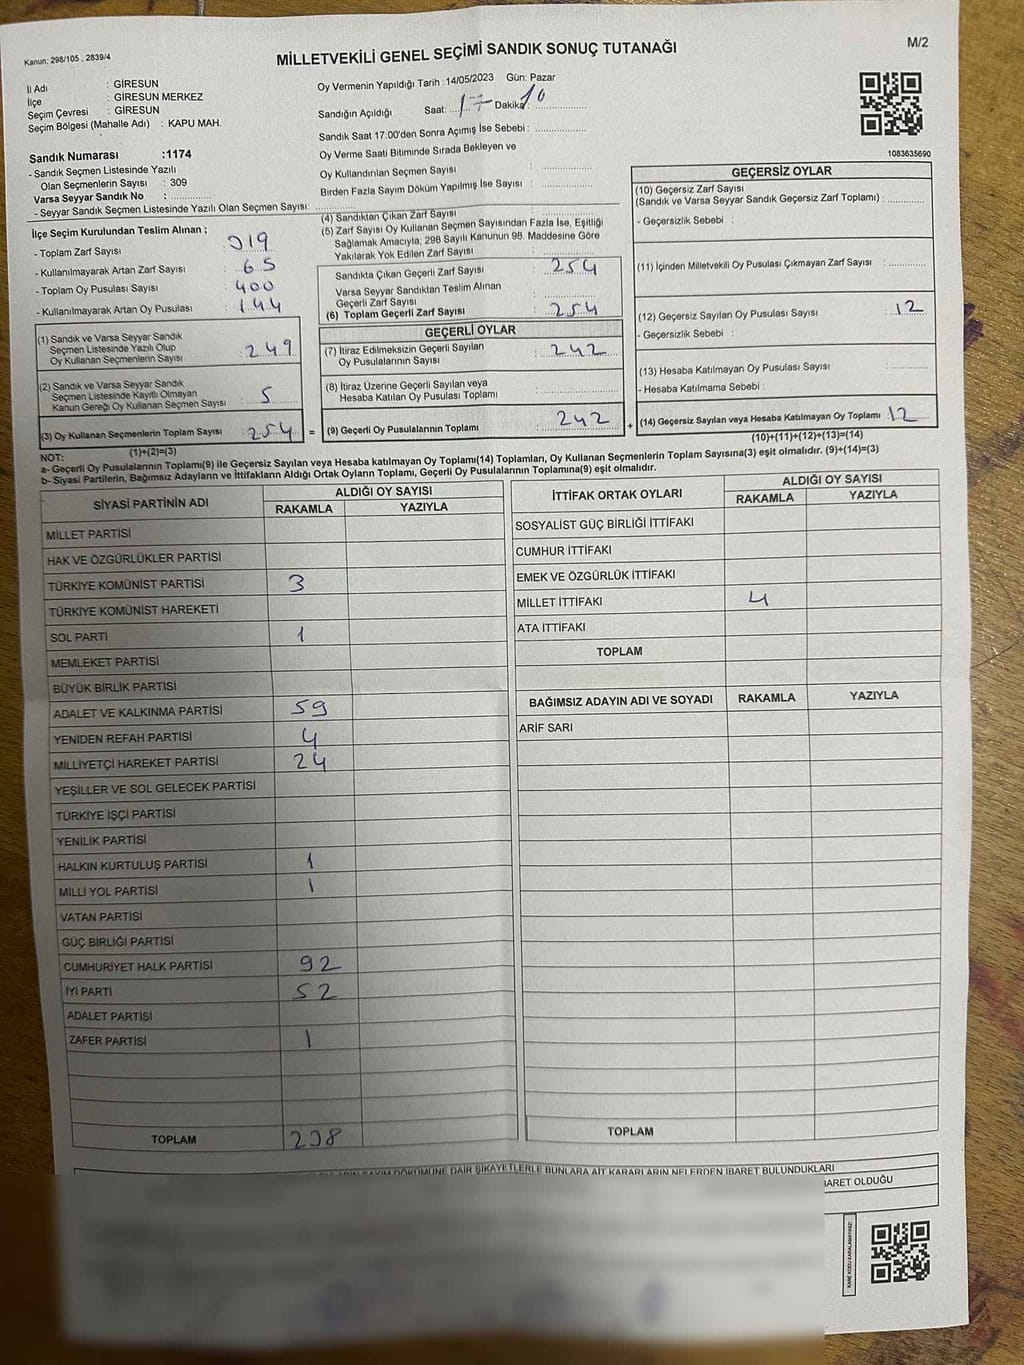 Kanun: 298/105 , 2839/4
MİLLETVEKİLİ GENEL SEÇİMİ SANDIK SONUÇ TUTANAĞI
M/2
İl Adı : GİRESUN
İlçe : GİRESUN MERKEZ
Seçim Çevresi : GİRESUN
Seçim Bölgesi (Mahalle Adı) : KAPU MAH.
Sandık Numarası :1174
- Sandık Seçmen Listesinde Yazılı
Olan Seçmenlerin Sayısı : 309
Varsa Seyyar Sandık No :
- Seyyar Sandık Seçmen Listesinde Yazılı Olan Seçmen Sayısı:
Oy Vermenin Yapıldığı Tarih :14/05/2023 Gün: Pazar
Sandığın Açıldığı Saat: 17 Dakika 10
Sandık Saat 17:00'den Sonra Açımış İse Sebebi :
Oy Verme Saati Bitiminde Sırada Bekleyen ve
Oy Kullandırılan Seçmen Sayısı :
Birden Fazla Sayım Döküm Yapılmış İse Sayısı :
1083635690
İlçe Seçim Kurulundan Teslim Alınan ;
- Toplam Zarf Sayısı : 319
- Kullanılmayarak Artan Zarf Sayısı : 65
- Toplam Oy Pusulası Sayısı : 400
- Kullanılmayarak Artan Oy Pusulası : 144
(1) Sandık ve Varsa Seyyar Sandık
Seçmen Listesinde Yazılı Olup
Oy Kullanan Seçmenlerin Sayısı : 249
(2) Sandık ve Varsa Seyyar Sandık
Seçmen Listesinde Kayıtlı Olmayan
Kanun Gereği Oy Kullanan Seçmen Sayısı : 5
(3) Oy Kullanan Seçmenlerin Toplam Sayısı : 254 =
(1)+(2)=(3)
(4) Sandıktan Çıkan Zarf Sayısı :
(5) Zarf Sayısı Oy Kullanan Seçmen Sayısından Fazla İse, Eşitliği
Sağlamak Amacıyla; 298 Sayılı Kanunun 98. Maddesine Göre
Yakılarak Yok Edilen Zarf Sayısı :
Sandıkta Çıkan Geçerli Zarf Sayısı : 254
Varsa Seyyar Sandıktan Teslim Alınan
Geçerli Zarf Sayısı :
(6) Toplam Geçerli Zarf Sayısı : 254
GEÇERLİ OYLAR
(7) İtiraz Edilmeksizin Geçerli Sayılan
Oy Pusulalarının Sayısı : 242
(8) İtiraz Üzerine Geçerli Sayılan veya
Hesaba Katılan Oy Pusulası Toplamı :
(9) Geçerli Oy Pusulalarının Toplamı : 242 +
GEÇERSİZ OYLAR
(10) Geçersiz Zarf Sayısı
(Sandık ve Varsa Seyyar Sandık Geçersiz Zarf Toplamı) :
- Geçersizlik Sebebi :
(11) İçinden Milletvekili Oy Pusulası Çıkmayan Zarf Sayısı :
(12) Geçersiz Sayılan Oy Pusulası Sayısı : 12
- Geçersizlik Sebebi :
(13) Hesaba Katılmayan Oy Pusulası Sayısı :
- Hesaba Katılmama Sebebi :
(14) Geçersiz Sayılan veya Hesaba Katılmayan Oy Toplamı : 12
(10)+(11)+(12)+(13)=(14)
NOT:
a- Geçerli Oy Pusulalarının Toplamı(9) ile Geçersiz Sayılan veya Hesaba katılmayan Oy Toplamı(14) Toplamları, Oy Kullanan Seçmenlerin Toplam Sayısına(3) eşit olmalıdır. (9)+(14)=(3)
b- Siyasi Partilerin, Bağımsız Adayların ve İttifakların Aldığı Ortak Oyların Toplamı, Geçerli Oy Pusulalarının Toplamına(9) eşit olmalıdır.
SİYASİ PARTİNİN ADI
ALDIĞI OY SAYISI
RAKAMLA YAZIYLA
MİLLET PARTİSİ
HAK VE ÖZGÜRLÜKLER PARTİSİ
TÜRKİYE KOMÜNİST PARTİSİ 3
TÜRKİYE KOMÜNİST HAREKETİ
SOL PARTİ 1
MEMLEKET PARTİSİ
BÜYÜK BİRLİK PARTİSİ
ADALET VE KALKINMA PARTİSİ 59
YENİDEN REFAH PARTİSİ 4
MİLLİYETÇİ HAREKET PARTİSİ 24
YEŞİLLER VE SOL GELECEK PARTİSİ
TÜRKİYE İŞÇİ PARTİSİ
YENİLİK PARTİSİ
HALKIN KURTULUŞ PARTİSİ 1
MİLLİ YOL PARTİSİ 1
VATAN PARTİSİ
GÜÇ BİRLİĞİ PARTİSİ
CUMHURİYET HALK PARTİSİ 92
İYİ PARTİ 52
ADALET PARTİSİ
ZAFER PARTİSİ 1
TOPLAM 238
İTTİFAK ORTAK OYLARI
ALDIĞI OY SAYISI
RAKAMLA YAZIYLA
SOSYALİST GÜÇ BİRLİĞİ İTTİFAKI
CUMHUR İTTİFAKI
EMEK VE ÖZGÜRLÜK İTTİFAKI
MİLLET İTTİFAKI 4
ATA İTTİFAKI
TOPLAM
BAĞIMSIZ ADAYIN ADI VE SOYADI RAKAMLA YAZIYLA
ARİF SARI
TOPLAM
SAYIM DÖKÜMÜNE DAİR ŞİKAYETLERLE BUNLARA AİT KARARLARIN NELERDEN İBARET BULUNDUKLARI
İBARET OLDUĞU